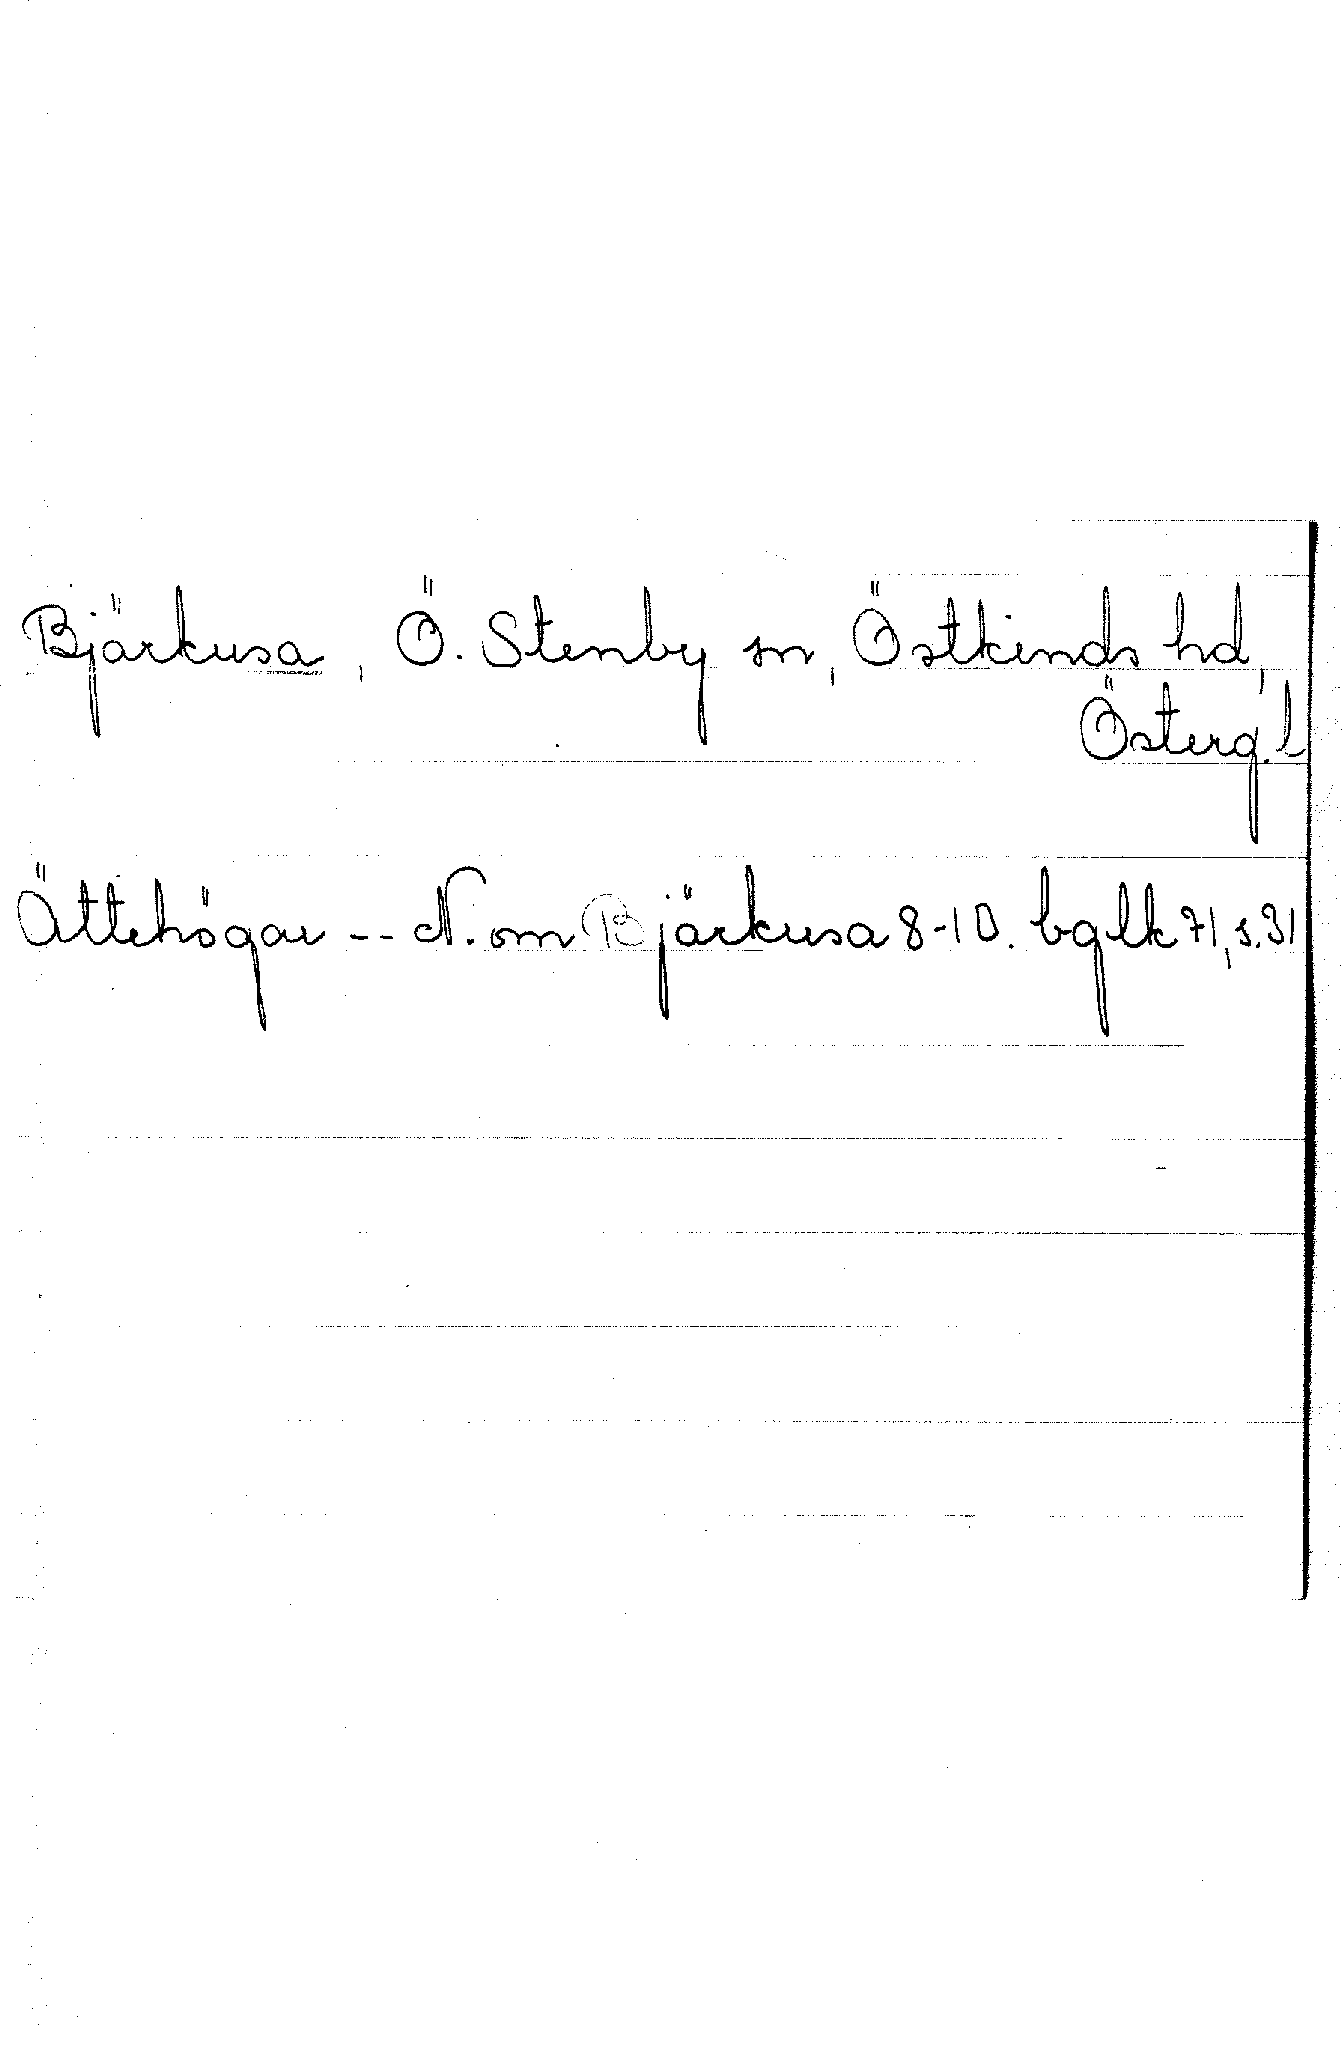 Bjärkusa, Ö. Stenby sn, Östkinds hd,
Österg.l
Ättehögar -- N. om Bjärkusa 8-10. bglk 71, s. 31